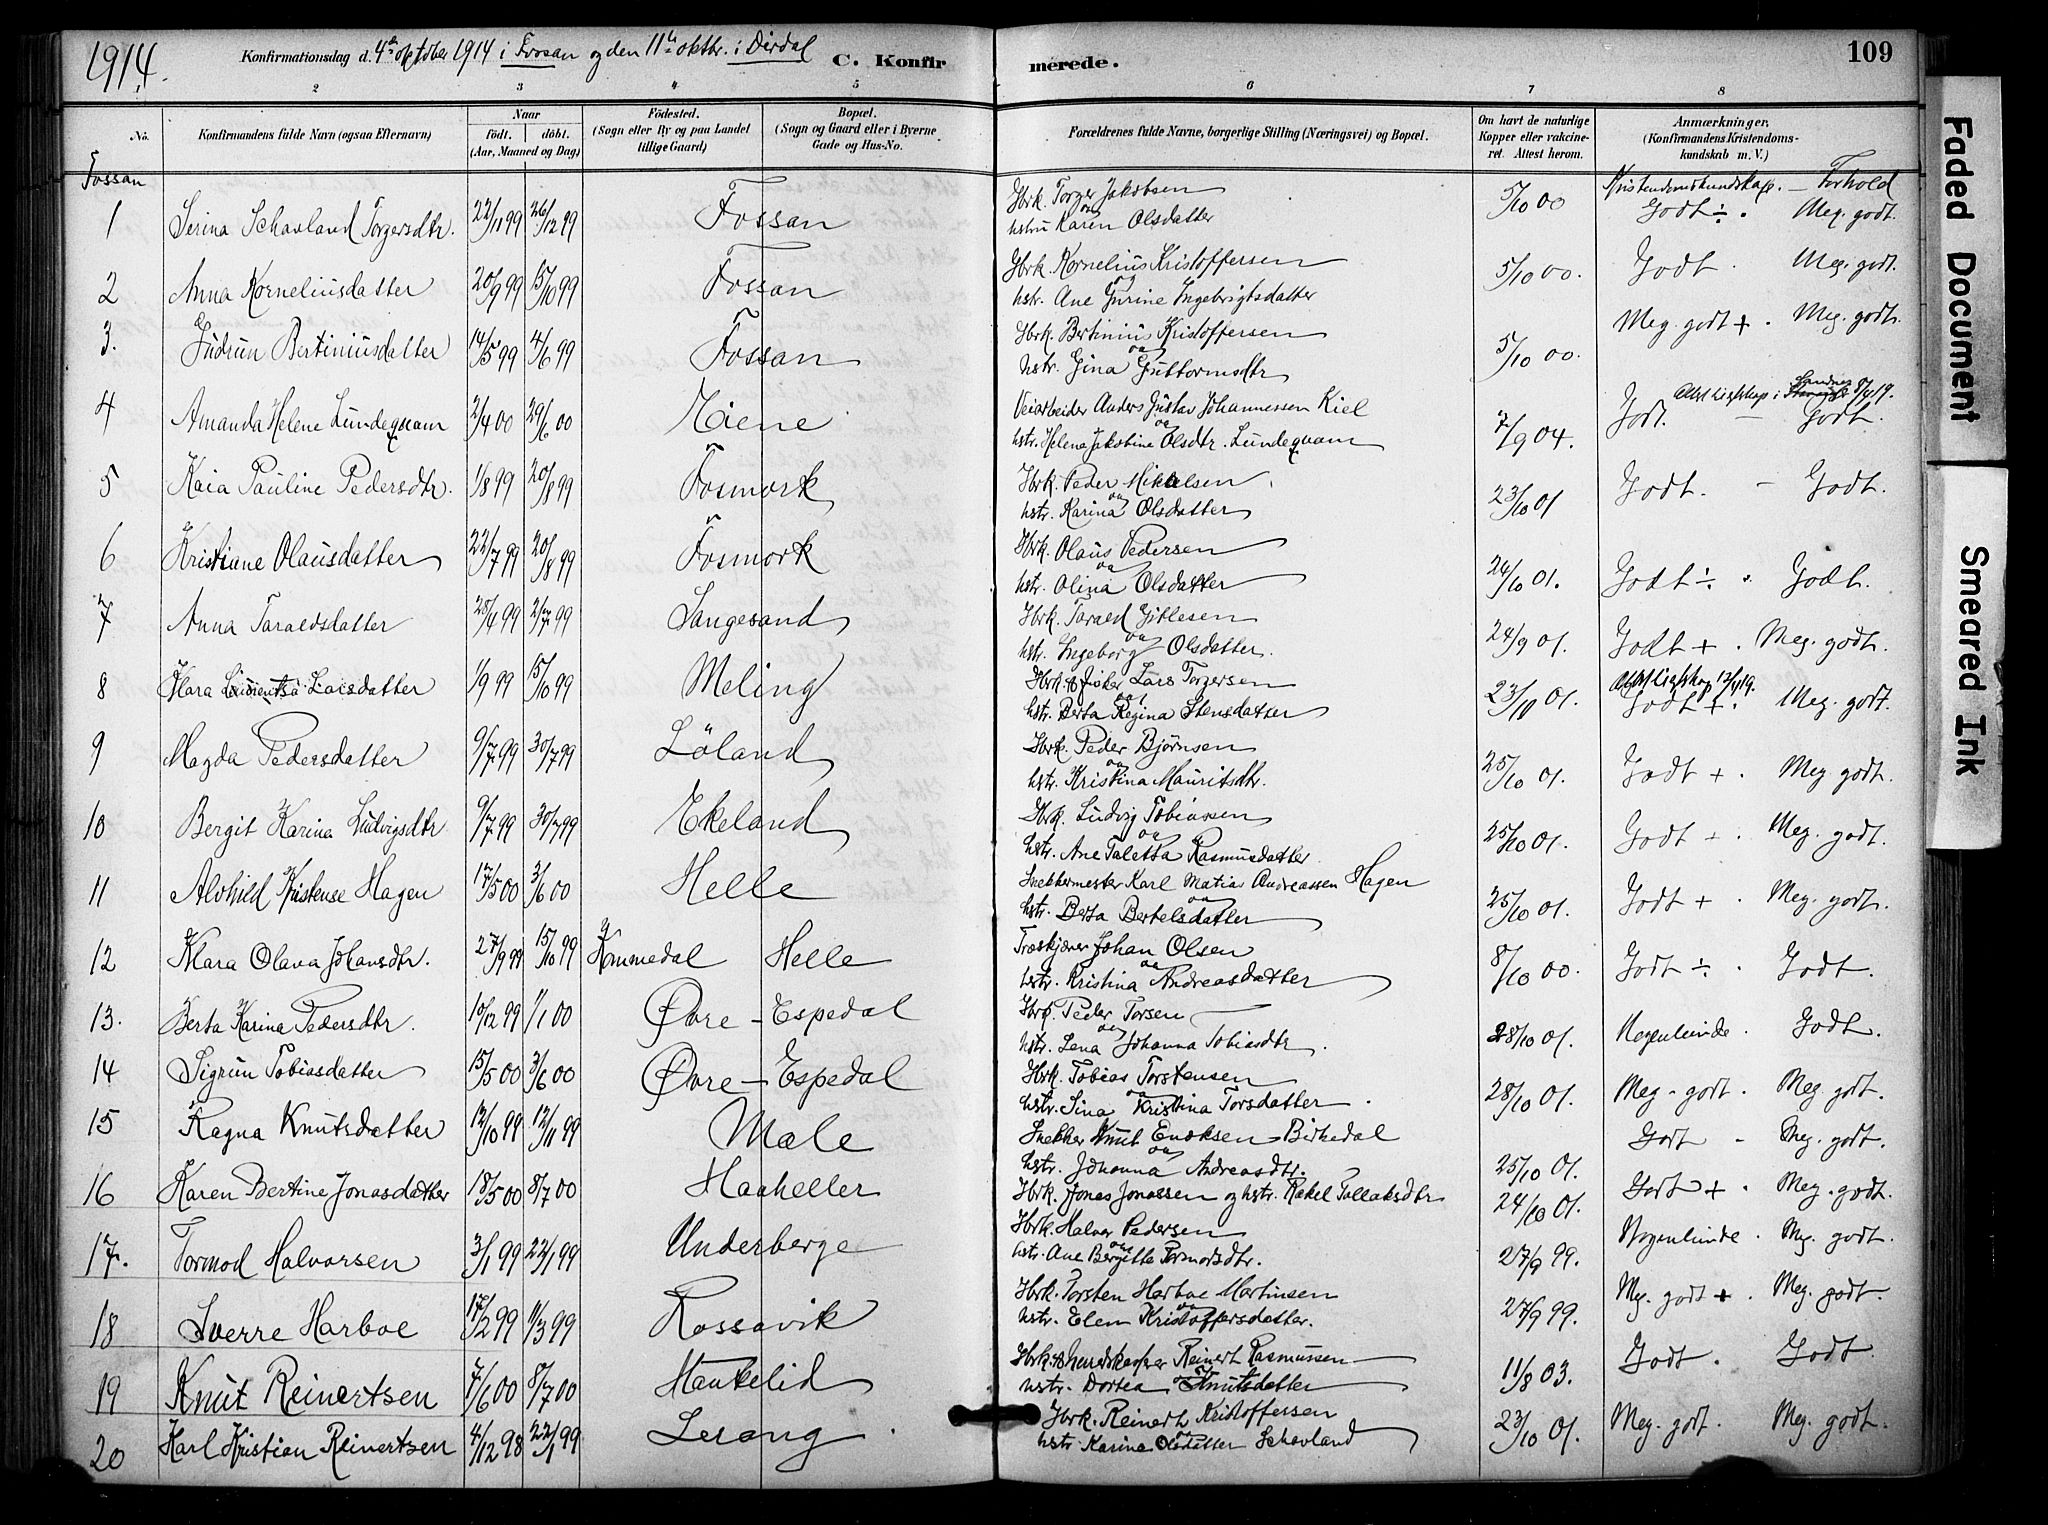 1914.
Konfirmationsdag d. 4de oktober 1914 i Fossan og den 11te oktbr. i Dirdal
C. Konfirmerede.
109
2 3 4 5 6 7 8
No. Konfirmandens fulde Navn (ogsaa Efternavn) Naar født. døbt. (Aar, Maaned og Dag) Fødested. (Sogn eller By og paa Landet tillige Gaard) Bopæl. (Sogn og Gaard eller i Byerne Gade og Hus-No. Forældrenes fulde Navne, borgerlige Stilling (Næringsvei) og Bopæl. Om havt de naturlige Kopper eller vakcineret. Attest herom. Anmærkninger. (Konfirmandens Kristendomskundskab m. V.)
Fossan
Kristendomskundskap. — Forhold
1 Serina Schavland Torgersdtr. 22/11 99 26/12 99 Fossan Gbrk. Torger Jakobsen 5/10 00 Godt ÷. Meg. godt.
og hstru Karen Olsdatter
2 Anna Korneliusdatter 20/9 99 15/10 99 Fossan Gbrk. Kornelius Kristoffersen 5/10 00. Godt. Meg. godt.
og hstr. Ane Gurine Ingebrigtsdatter
3. Gudrun Bertiniusdatter 14/5 99 4/6 99 Fossan Gbrk. Bertinius Kristoffersen 5/10 00. Meg. godt +. Meg. godt.
og hstr. Gina Guttormsdtr
4 Amanda Helene Lundeqvam 2/4 00 29/6 00 Moene Veiarbeider Anders Gustav Johannessen Kiel 7/9 04. Godt. — Godt.
og hstr. Helena Jakobine Olsdtr. Lundeqvam
5 Kaia Pauline Pedersdtr. 1/8 99 20/8 99 Fosmork Gbrk. Peder Mikalsen 23/10 01 Godt. — Godt.
og hstr. Karina Olsdatter
6 Kristiane Olausdatter 22/7 99 20/8 99 Fosmork Gbrk. Olaus Pedersen 24/10 01. Godt ÷. Godt.
og hstr. Olina Olsdatter
7 Anna Taraldsdatter 28/4 99 2/7 99 Sangesand Gbrk. Tarald Gitlesen 24/9 01. Godt +. Meg. godt.
og hstr. Ingeborg Olsdatter.
8 Klara Larsdatter 1/9 99 15/10 99 Meling Gbrk. & Fisker Lars Torgersen 23/10 01. Godt +. Meg. godt.
og hstr. Berta Regina Stensdatter
9 Magda Pedersdatter 9/7 99 30/7 99 Løland Gbrk. Peder Bjørnsen 25/10 01. Godt +. Meg godt.
og hstr. Kristina Mauritsdtr.
10 Bergit Karina Ludvigsdtr 9/7 99 30/7 99 Ekeland Gbrk. Ludvig Tobiassen 25/10 01. Godt +. Meg. godt.
og hstr. Ane Taletta Rasmusdatter.
11 Alvhild Kristense Hagen 17/5 00 3/6 00 Helle Snekkermester Karl Matias Andreassen Hagen 25/10 01. Godt +. Meg. godt.
og hstr. Berta Bertelsdatter
12 Klara Olava Johansdtr. 27/9 99 15/10 99 Kommedal Helle Træskjærer Johan Olsen 8/10 00. Godt ÷. Godt.
og hstr. Kristina Andreasdatter
13. Berta Karina Pedersdtr. 10/12 99 1/1 00 Øvre - Espedal Gbrk. Peder Torsen 28/10 01. Nogenlunde. Godt.
og hstr. Lena Johanna Tobiasdtr.
14 Sigrun Tobiasdatter 15/5 00 3/6 00 Øvre - Espedal Gbrk. Tobias Torstensen 28/10 01. Meg. godt. Meg. godt.
og hstr. Sina Kristina Torsdatter.
15 Ragna Knutsdatter 12/10 99 12/11 99 Mæle Snekker Knut Enoksen Birkedal 25/10 01. Godt - Meg. godt.
og hstr. Johanna Andreasdtr.
16 Karen Bertine Jonasdatter 18/5 00 8/7 00 Haaheller Gbrk. Jonas Jonassen og hstr. Rakel Tollaksdtr 24/10 01. Godt +. Meg. godt.
17. Tormod Halvorsen 3/1 99 22/1 99 Underberge Gbrk. Halvor Pedersen 27/9 99. Nogenlunde. Meg. godt.
og hstr. Ane Bergitte Tormodsdtr.
18 Sverre Harboe 17/2 99 1/3 99 Rossavik Gbrk. Torsten Harboe Martinsen 27/9 99. Meg. godt +. Meg. godt.
og hstr. Elen Kristoffersdatter.
19 Knut Reinertsen 7/6 00 8/7 00 Haukelid Gbrk. & Reinert Rasmussen 11/8 03. Godt. Godt.
hstr. Dortea Knutsdatter
20 Karl Kristian Reinertsen 4/12 98 22/1 99 Lerang Gbrk. Reinert Kristoffersen 23/10 01. Meg. godt. Meg. godt.
og hstr. Karina Olsdatter Schavland
Faded Document
Smeared Ink